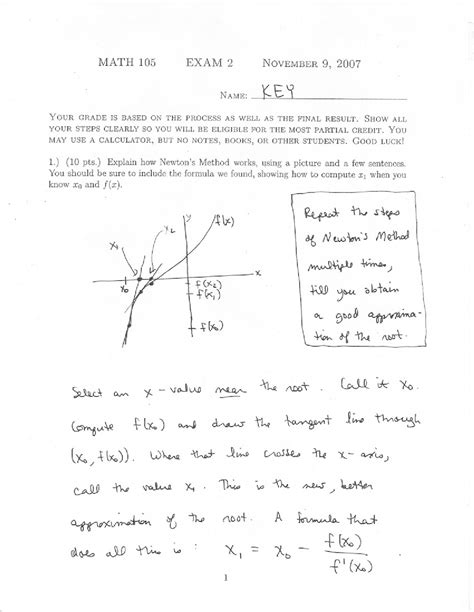 MATH 105 EXAM 2 NOVEMBER 9, 2007
NAME: KEY
YOUR GRADE IS BASED ON THE PROCESS AS WELL AS THE FINAL RESULT. SHOW ALL
YOUR STEPS CLEARLY SO YOU WILL BE ELIGIBLE FOR THE MOST PARTIAL CREDIT. YOU
MAY USE A CALCULATOR, BUT NO NOTES, BOOKS, OR OTHER STUDENTS. GOOD LUCK!
1.) (10 pts.) Explain how Newton's Method works, using a picture and a few sentences.
You should be sure to include the formula we found, showing how to compute x₁ when you
know x₀ and f(x).
y f(x)
x₂
x₁
x
x₀
f(x₂)
f(x₁)
f(x₀)
Repeat the steps
of Newton's Method
multiple times,
till you obtain
a good approxima-
tion of the root.
Select an x-value near the root. Call it x₀.
Compute f(x₀) and draw the tangent line through
(x₀, f(x₀)). Where that line crosses the x-axis,
call the value x₁. This is the new, better
approximation of the root. A formula that
does all this is: x₁ = x₀ - f(x₀) / f'(x₀)
1